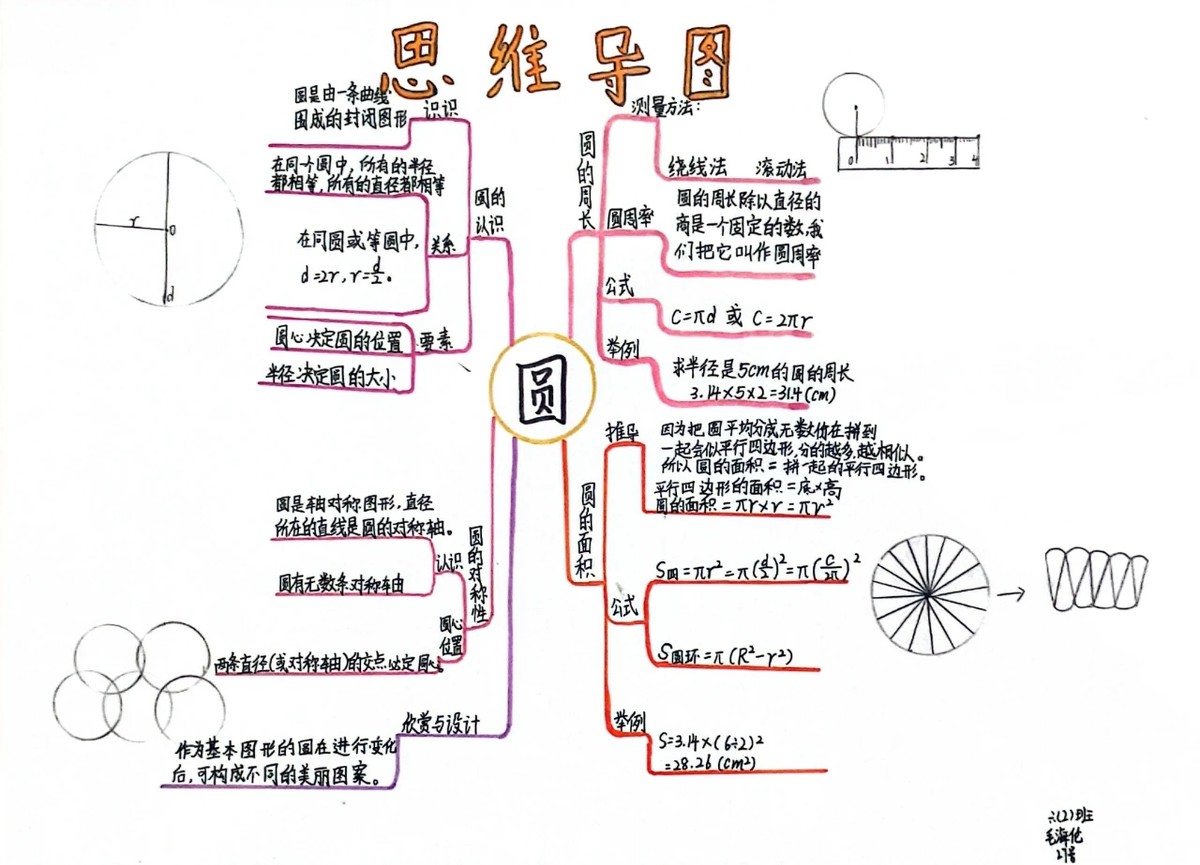 思维导图
圆
圆的认识
识识
圆是由一条曲线
围成的封闭图形
关系
在同个圆中，所有的半径
都相等，所有的直径都相等
在同圆或等圆中，
d=2r，r=d/2。
要素
圆心决定圆的位置
半径决定圆的大小
r
o
d
圆的周长
测量方法：
绕线法 滚动法
0 1 2 3 4
圆周率
圆的周长除以直径的
商是一个固定的数，我
们把它叫作圆周率
公式
C=πd 或 C=2πr
举例
求半径是5cm的圆的周长
3.14×5×2=31.4(cm)
圆的面积
推导
因为把圆平均分成无数份在拼到
一起会似平行四边形，分的越多，越相似。
所以圆的面积=拼一起的平行四边形。
平行四边形的面积=底×高
圆的面积=πr×r=πr²
公式
S圆=πr²=π(d/2)²=π(C/2π)²
S圆环=π(R²-r²)
举例
S=3.14×(6÷2)²
=28.26(cm²)
圆的对称性
认识
圆是轴对称图形，直径
所在的直线是圆的对称轴。
圆有无数条对称轴
圆心
位置
两条直径(或对称轴)的交点决定圆心。
欣赏与设计
作为基本图形的圆在进行变化
后，可构成不同的美丽图案。
六(2)班
毛
21号